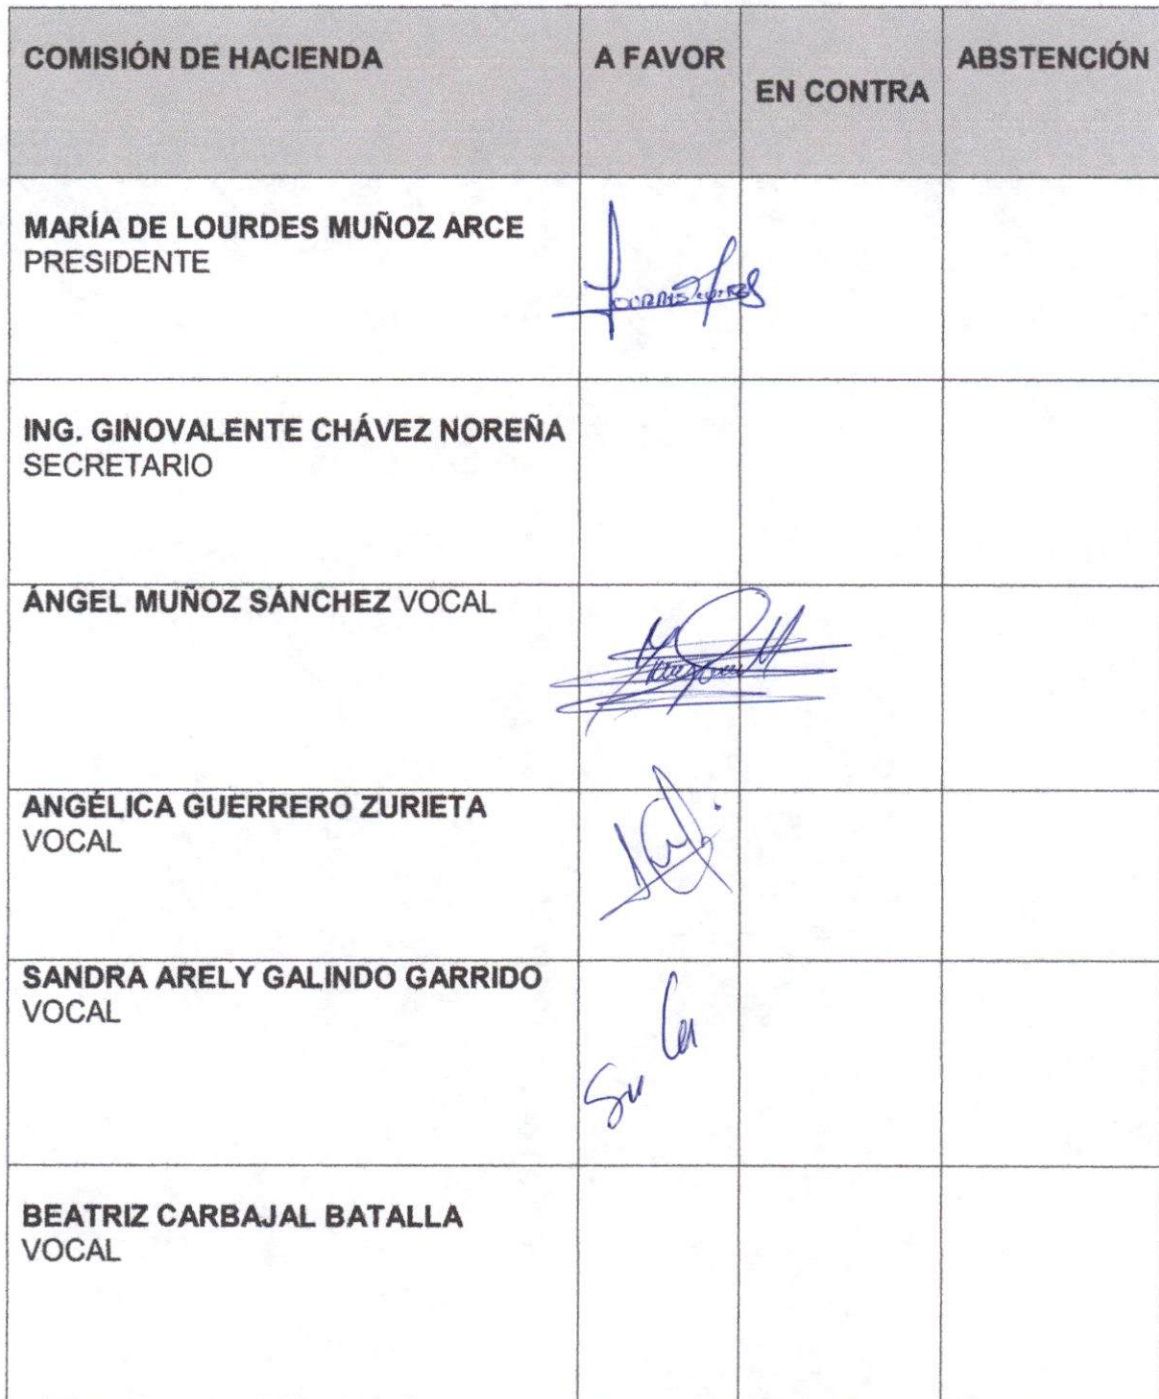 COMISIÓN DE HACIENDA
A FAVOR
EN CONTRA
ABSTENCIÓN
MARÍA DE LOURDES MUÑOZ ARCE
PRESIDENTE
ING. GINOVALENTE CHÁVEZ NOREÑA
SECRETARIO
ÁNGEL MUÑOZ SÁNCHEZ VOCAL
ANGÉLICA GUERRERO ZURIETA
VOCAL
SANDRA ARELY GALINDO GARRIDO
VOCAL
BEATRIZ CARBAJAL BATALLA
VOCAL